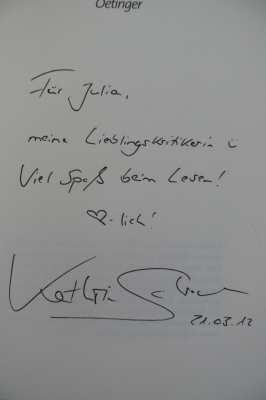 Oetinger
Für Julia,
meine Lieblingskritikerin
Viel Spaß beim Lesen!
♡-lich!
Kathrin
21.03.12